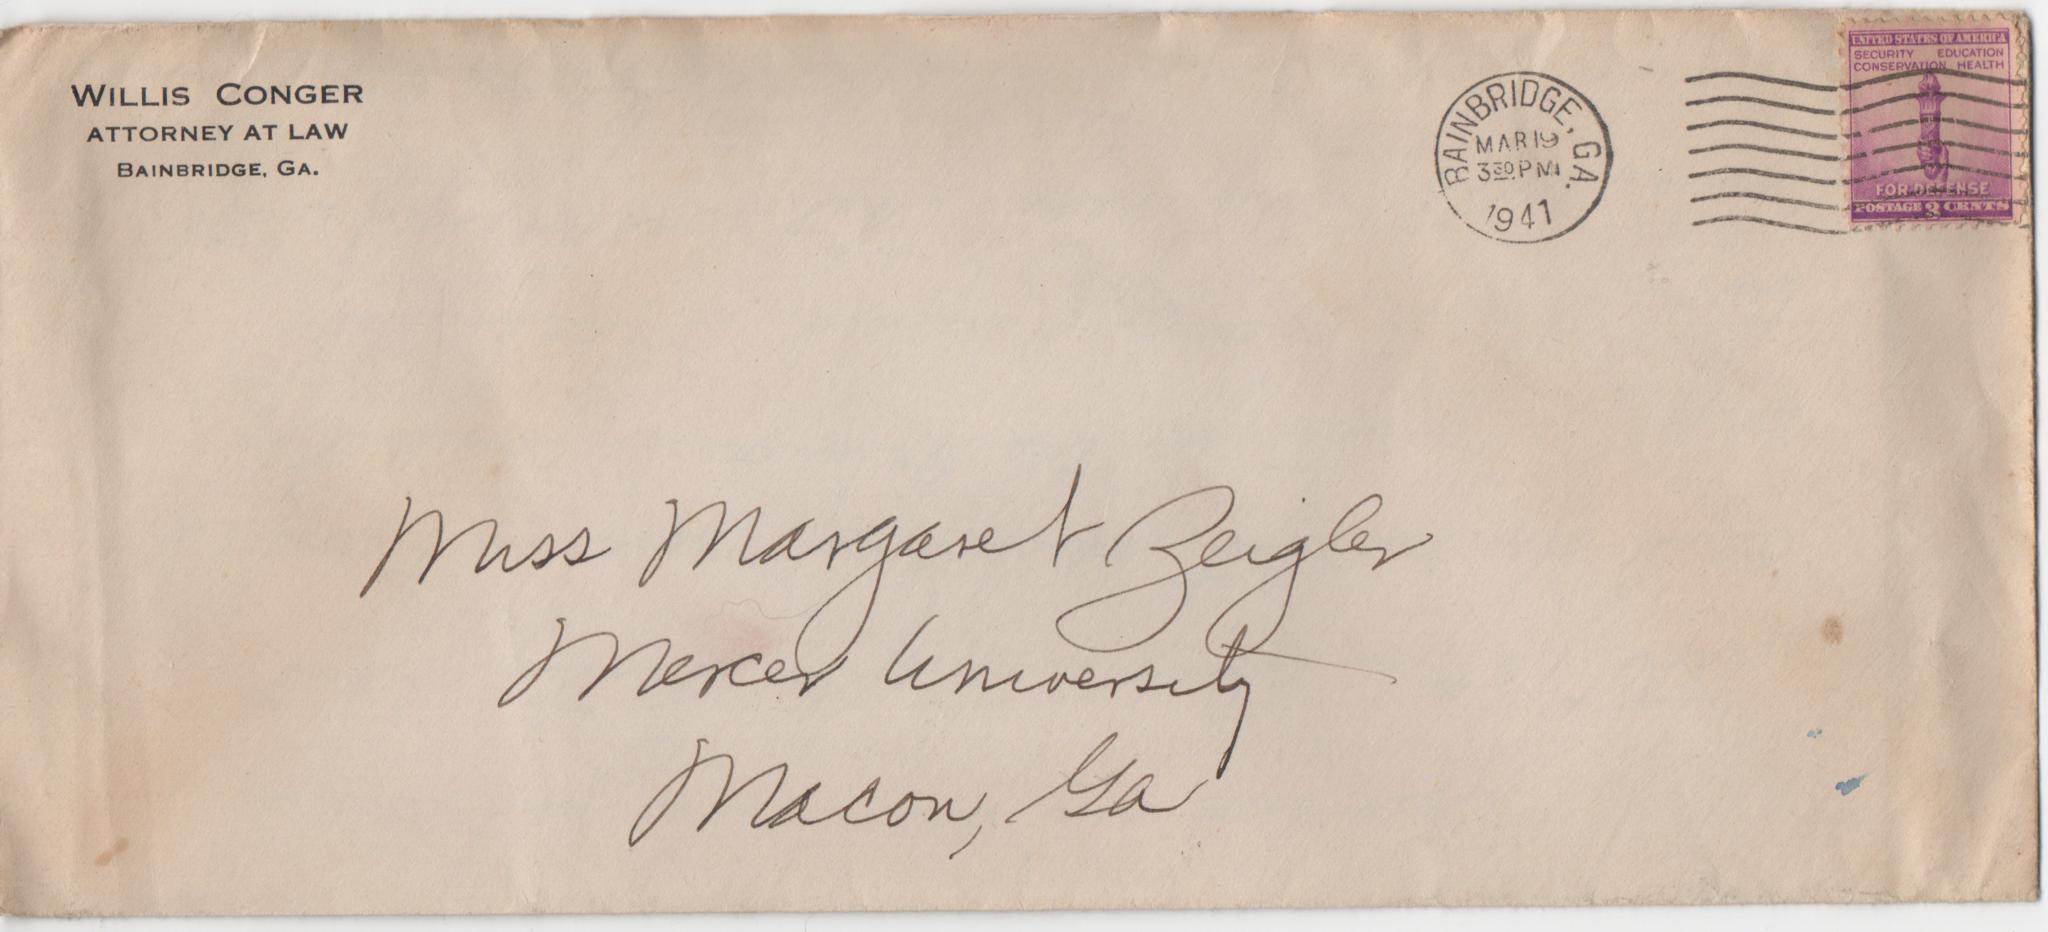 WILLIS CONGER
ATTORNEY AT LAW
BAINBRIDGE, GA.
BAINBRIDGE, GA.
MAR 19
3 30 PM
1941
UNITED STATES OF AMERICA
SECURITY EDUCATION
CONSERVATION HEALTH
FOR DEFENSE
POSTAGE 3 CENTS
Miss Margaret Zeigler
Mercer University
Macon, Ga